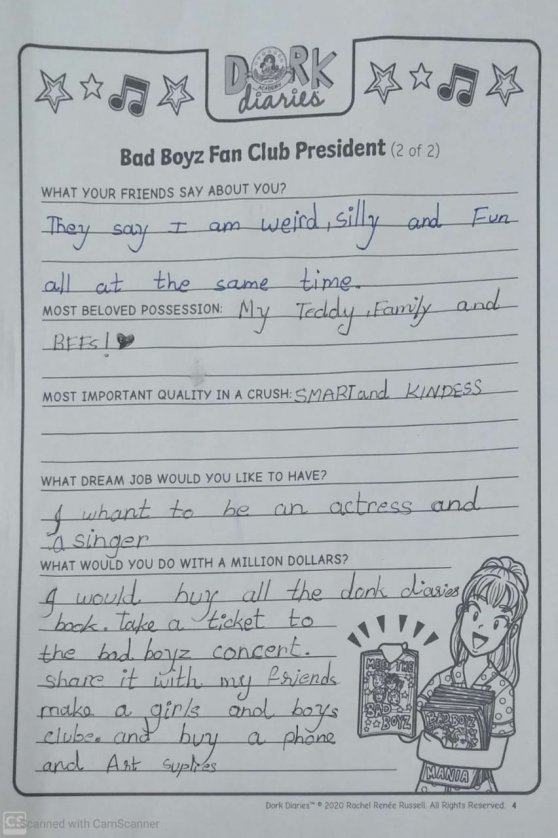 DORK
ACADEMY
diaries
Bad Boyz Fan Club President (2 of 2)
WHAT YOUR FRIENDS SAY ABOUT YOU?
They say I am weird, silly and Fun
all at the same time.
MOST BELOVED POSSESSION: My Teddy, Family and
BFFs! ♥
MOST IMPORTANT QUALITY IN A CRUSH: SMART and KINDESS
WHAT DREAM JOB WOULD YOU LIKE TO HAVE?
I whant to be an actress and
a singer
WHAT WOULD YOU DO WITH A MILLION DOLLARS?
I would buy all the dork diaries
book. take a ticket to
the bad boyz concert.
share it with my friends
make a girls and boys
clube. and buy a phone
and Art suplies
MEET THE
BAD
BOYZ
BAD BOYZ
MANIA
Dork Diaries™ © 2020 Rachel Renée Russell. All Rights Reserved. 4
CS Scanned with CamScanner